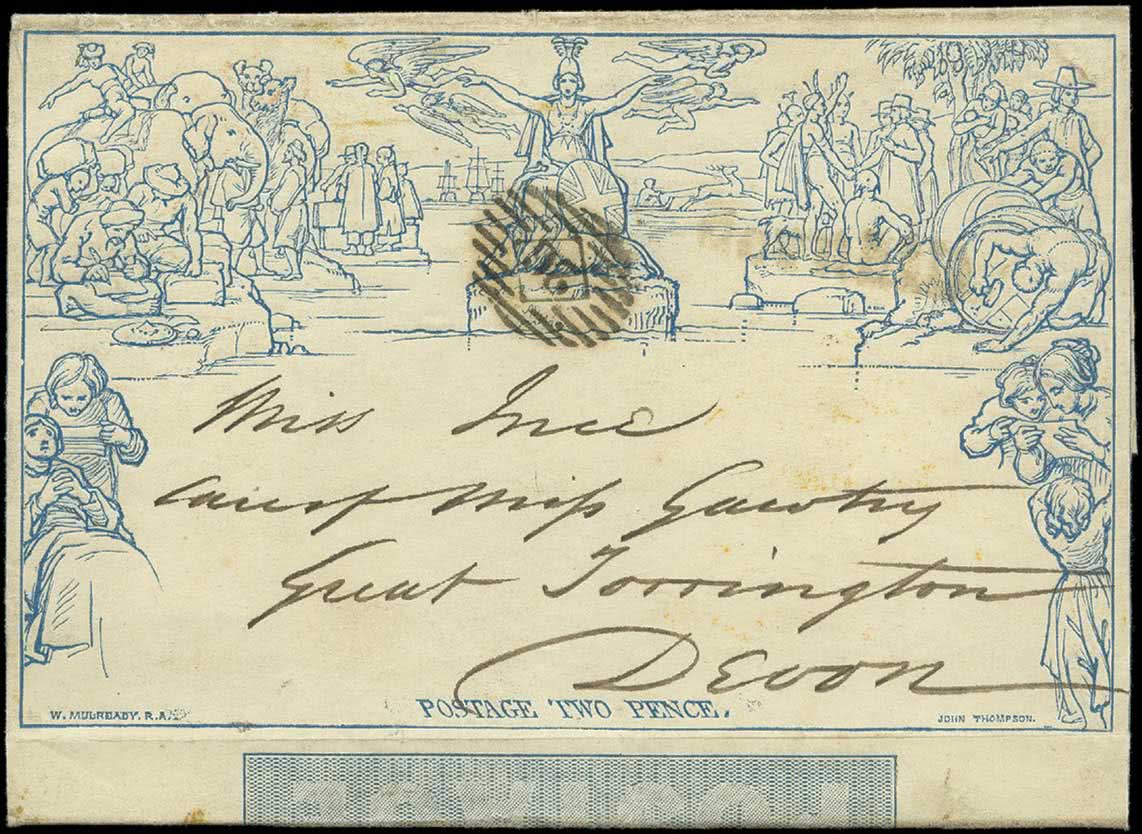 Miss Ince
care of Miss Gawtry
Great Torrington
Devon
POSTAGE TWO PENCE.
W. MULREADY. R.A.
JOHN THOMPSON.